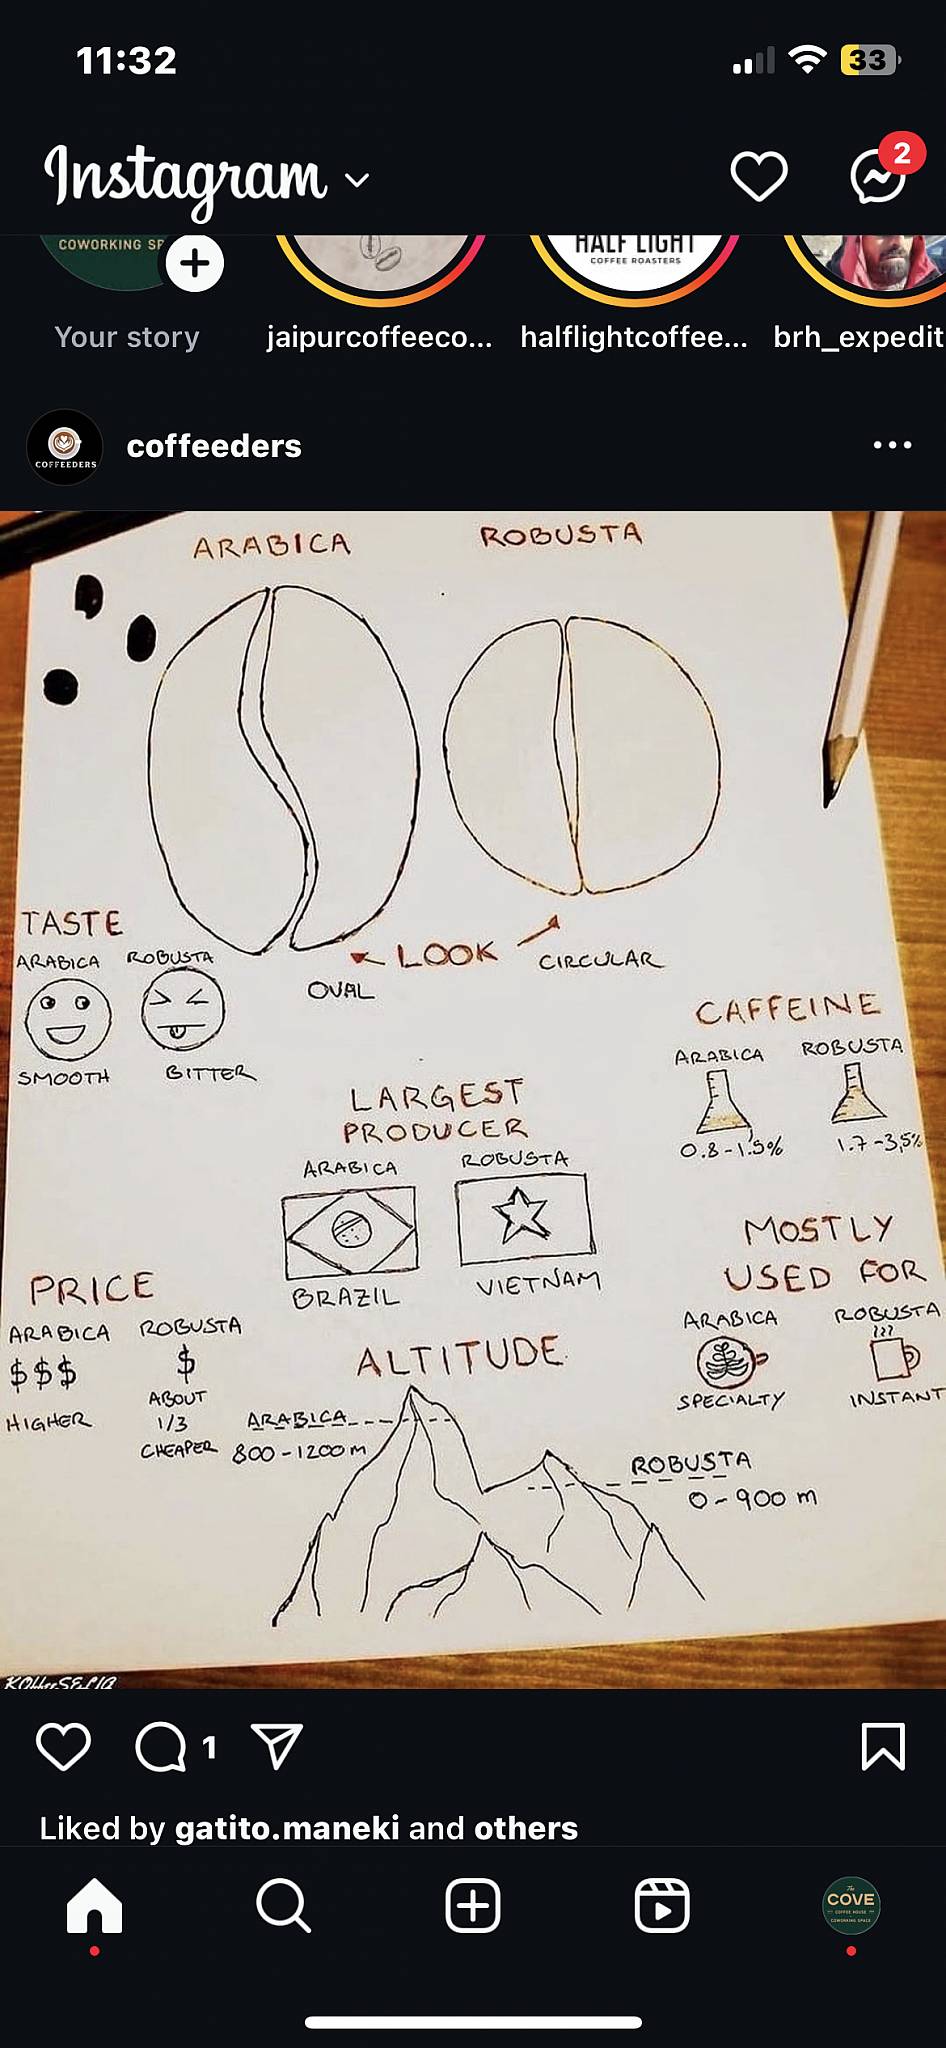 11:32
33
Instagram
2
COWORKING SP
HALF LIGHT
COFFEE ROASTERS
Your story
jaipurcoffeeco...
halflightcoffee...
brh_expedit
COFFEEDERS
coffeeders
ARABICA
ROBUSTA
TASTE
ARABICA ROBUSTA
SMOOTH BITTER
LOOK
OVAL
CIRCULAR
CAFFEINE
ARABICA ROBUSTA
0.8-1.5% 1.7-3,5%
LARGEST
PRODUCER
ARABICA ROBUSTA
BRAZIL VIETNAM
MOSTLY
USED FOR
ARABICA ROBUSTA
SPECIALTY INSTANT
PRICE
ARABICA ROBUSTA
$$$ $
HIGHER
ABOUT
1/3
CHEAPER
ALTITUDE
ARABICA
800-1200m
ROBUSTA
0-900 m
1
Liked by gatito.maneki and others
The
COVE
COFFEE HOUSE
COWORKING SPACE